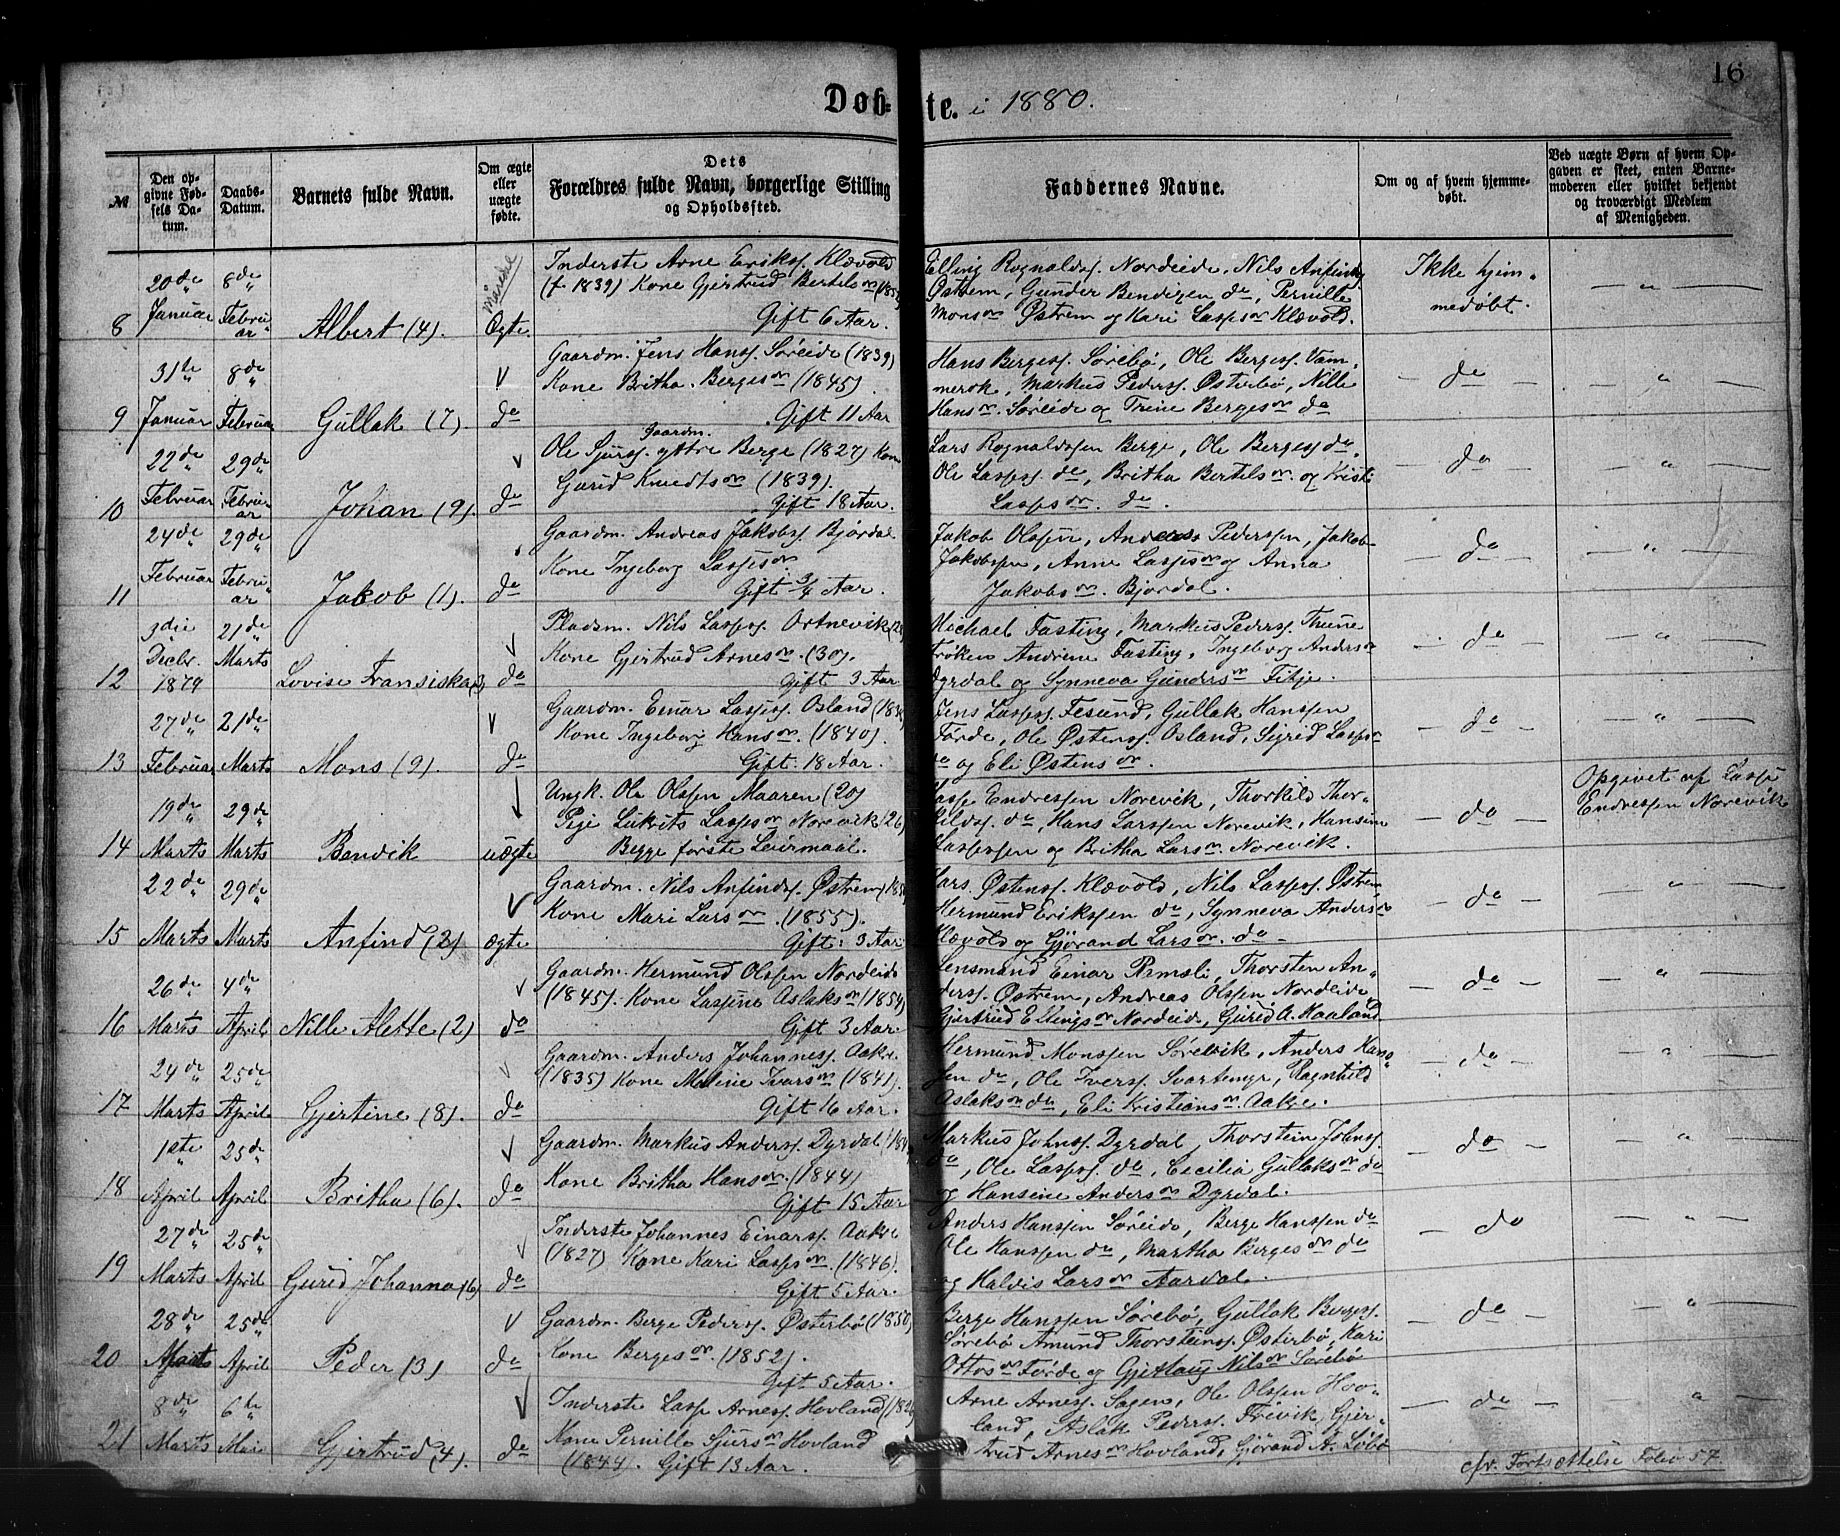 16
Døbte. i 1880.
№
Den opgivne Fødsels Datum.
Daabs-Datum.
Barnets fulde Navn.
Om ægte eller uægte fødte.
Dets Forældres fulde Navn, borgerlige Stilling og Opholdssted.
Faddernes Navne.
Om og af hvem hjemmedøbt.
Ved uægte Børn af hvem Opgaven er skeet, enten Barnemoderen eller hvilket bekjendt og troværdigt Medlem af Menigheden.
8 20de Januar 8de Februar Albert (4). Ægte.
Inderste Arne Erikss. Klævold
(f 1839) Kone Gjertrud Bertelsdr
Gift 6 Aar.
Elling Rognaldss. Nordeide, Nils Anfinds
Østrem, Gunder Bendixen do, Pernille
Monsdr Østrem og Kari Lassesdr Klævold.
Ikke hjemmedøbt.
9 31te Januar 8de Februar Gullak (7). do
Gaardm. Jens Hanss. Søreide (1839)
Kone Britha Bergesdr (1845).
Gift 11 Aar
Hans Bergess. Sørebø, Ole Bergess. Vam-
merok, Markus Pederss. Østerbø, Nille
Hansdr. Søreide og Trine Bergesdr do
do
10 22de Februar 29de Februar Johan (9). do
Gaardm.
Ole Sjurss. yttre Berge (1827) Kone
Gurid Knudtsdr (1839).
Gift 18 Aar.
Lars Rognaldssen Berge, Ole Bergess do,
Ole Lassess. do, Britha Bertelsdr. og Kristi
Lassesdr. do.
do
11 24de Februar 29de Februar Jakob (1). do
Gaardm. Andreas Jakobss. Bjordal
Kone Ingeborg Lassesdr
Gift 3/4 Aar.
Jakob Olssen, Anders Pederssen, Jakob
Jakobssen, Anne Lassesdr og Anna
Jakobsdr. Bjordal.
do
12 3die Decbr. 1879 21de Marts Lovise Fransiska do
Pladsm. Nils Lassess. Ortnevik
Kone Gjertrud Arnesdr. (30).
Gift 3 Aar
Michael Fasting, Markus Pederss. Thune
Frøken Andrine Fasting, Ingeborg Andersdr
Dyrdal og Synneva Gundersdr Fitje.
do
13 27de Februar 21de Marts Mons (9). do
Gaardm. Einar Lassess. Osland
Kone Ingeborg Hansdr. (1840).
Gift 18 Aar.
Jens Lassess. Tesund, Gullak Hanssen
Førde, Ole Østenss. Osland, Sigrid Lassesdr
do og Eli Østensdr.
do
14 19de Marts 29de Marts Bendik uægte
Ungk. Ole Olssen Maaren (20)
Pige Lukrits Lassesdr Norevik (26)
Begge første Leiermaal.
Lasse Endressen Norevik, Thorkild Thor-
kilds. do, Hans Larssen Norevik, Hansine
Lassessen og Britha Larsdr. Norevik.
do
Opgivet af Lasse
Endressen Norevik
15 22de Marts 29de Marts Anfind (2) ægte
Gaardm. Nils Anfindss. Østrem
Kone Mari Larsdr. (1855).
Gift: 3 Aar
Lars Østenss. Klævold, Nils Lassess. Østrem
Hermund Erikssen do, Synneva Andersdr
Klævold og Gjørand Larsdr. do
do
16 26de Marts 4de April Nille Alette (2) do
Gaardm. Hermund Olssen Nordeide
(1845). Kone Lassine Aslaksdr (1854)
Gift 3 Aar.
Lensmand Einar Ramsli, Thorsten An-
derss. Østrem, Andreas Olssen Nordeide,
Gjertrud Ellingsdr Nordeide, Gurid A. Maaland
do
17 24de Marts 25de April Gjertine (8). do
Gaardm. Anders Johanness. Aakre
(1835) Kone Maline Ivarsdr (1841).
Gift 16 Aar.
Hermund Monssen Sørevik, Anders Hans-
sen do, Ole Iverss. Svartemyr, Ragnhild
Aslaksdr do, Eli Kristiansdr. Aakre.
do
18 1ste April 25de April Britha (6). do
Gaardm. Markus Anderss. Dyrdal
Kone Britha Hansdr. (1844)
Gift 15 Aar
Markus Johnss. Dyrdal, Thorstein Johnss
do, Ole Lassess. do, Cecilia Gullaksdr do
og Hansine Andersdr Dyrdal.
do
19 27de Marts 25de April Gurid Johanna do
Inderste Johannes Einarss. Aakre
(1827) Kone Kari Lassesdr. (1846).
Gift 5 Aar.
Anders Hanssen Søreide, Berge Hanssen do
Ole Hanssen do, Martha Bergesdr do
og Haldis Larsdr Aardal.
do
20 28de Marts 25de April Peder (3) do
Gaardm. Berge Pederss. Østerbø (1850)
Kone Bergesdr. (1852).
Gift 5 Aar.
Berge Hanssen Sørebø, Gullak Bergess.
Sørebø Amund Thorsteinss. Østerbø, Kari
Ottosdr Førde og Gjetlaug Nilsdr Sørebø
do
21 8de Marts 6te Mai Gjertrud (4). do
Inderste Lasse Arness. Hovland
Kone Pernille Sjursdr Hovland
(1844). Gift 13 Aar.
Arne Arness. Sagen, Ole Olssen Hov-
land, Aslak Pederss. Frivik, Gjer-
trud Arnesdr Hovland, Gjørand A.Løbø
do
cfr. Fortsættelse Folio 57.